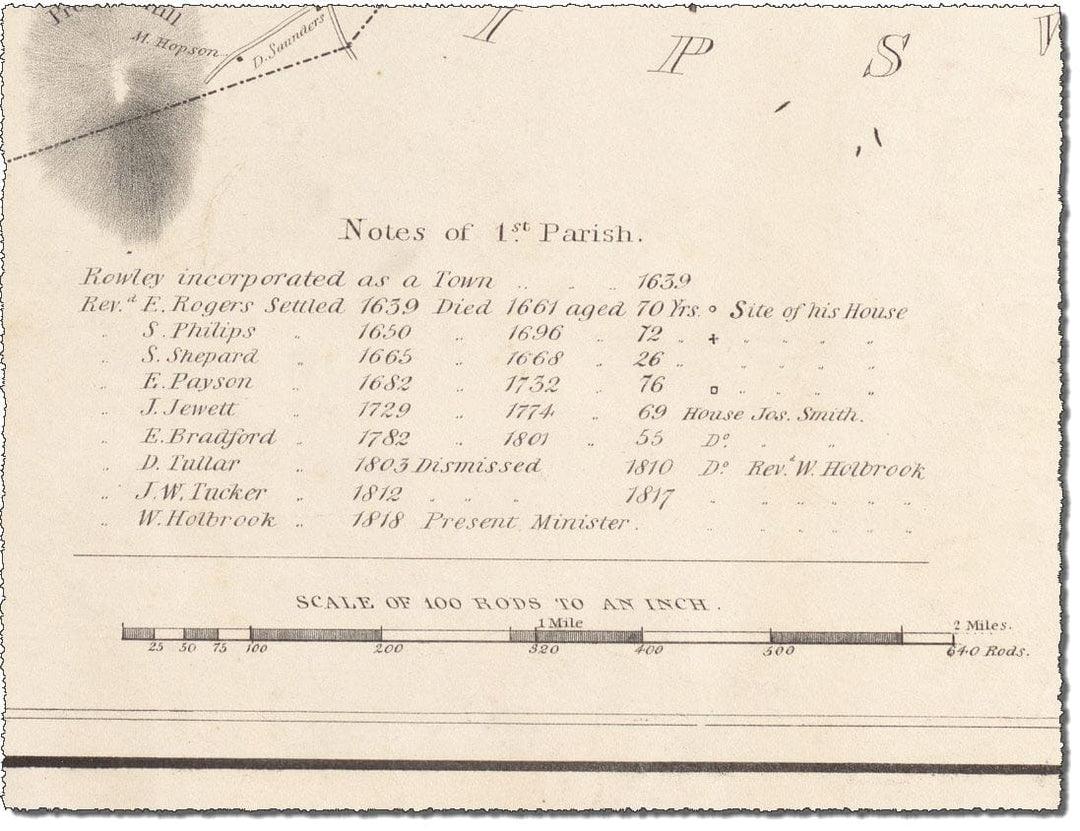 M. Hopson
D. Saunders
I P S W
Notes of 1.st Parish.
Rowley incorporated as a Town .. .. .. 1639
Rev.d E. Rogers Settled 1639 Died 1661 aged 70 Yrs. o Site of his House
.. S. Philips .. 1650 .. 1696 .. 72 .. + .. .. .. .. ..
.. S. Shepard .. 1665 .. 1668 .. 26 .. .. .. .. .. ..
.. E. Payson .. 1682 .. 1732 .. 76 □ .. .. .. .. ..
.. J. Jewett .. 1729 .. 1774 .. 69 House Jos. Smith.
.. E. Bradford .. 1782 .. 1801 .. 55 Do. .. ..
.. D. Tullar .. 1803 Dismissed 1810 Do. Rev.d W. Holbrook
.. J. W. Tucker .. 1812 .. .. .. 1817 .. .. .. .. .. .. ..
.. W. Holbrook .. 1818 Present Minister. .. .. .. .. .. ..
SCALE OF 100 RODS TO AN INCH.
1 Mile 2 Miles.
25 50 75 100 200 320 400 500 640 Rods.